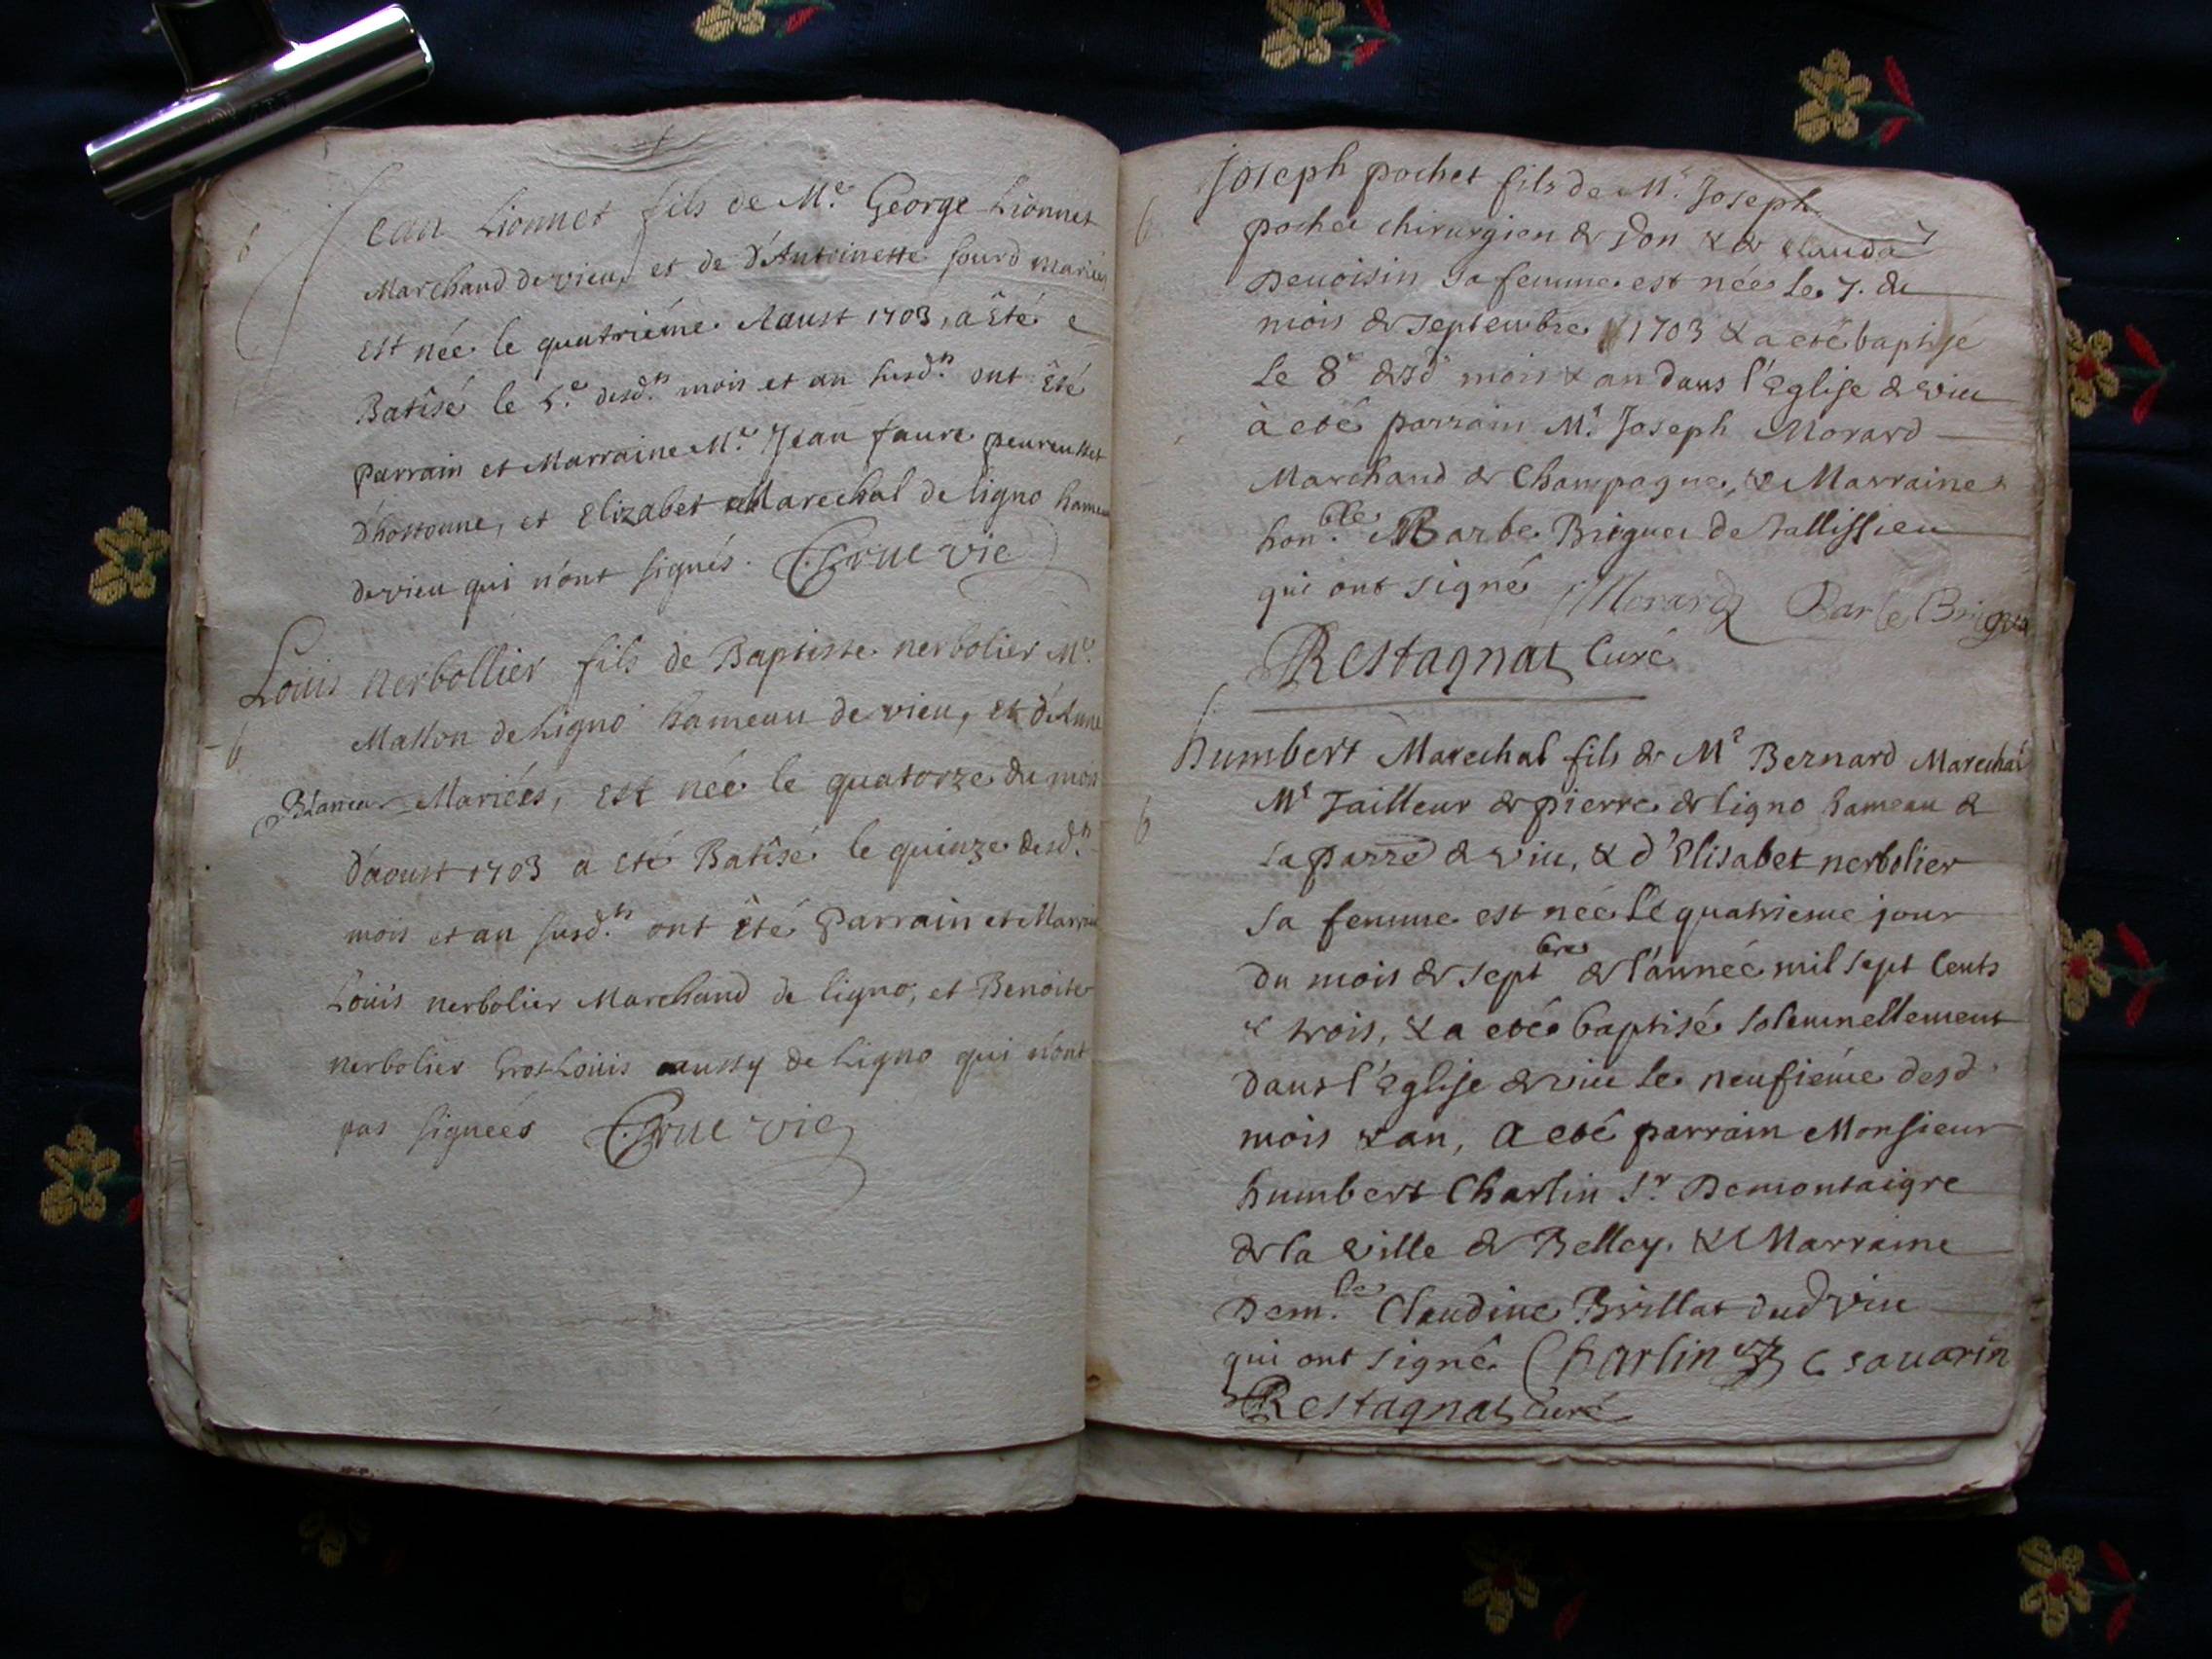 b
Jean Lionnet fils de M.e George Lionnet
Marchand de vieu, et de d'Antoinette sourd mariés
Est née le quatriéme Aaust 1703, a Eté
Batisé le 5.e desd.ts mois et an susd.ts ont Eté
Parrain et Marraine M.e Jean faure
d'hostonne, et Elizabet Marechal de ligno hameau
de vieu qui n'ont signés. Gruevie
Louis Nerbollier fils de Baptiste nerbolier M.e
b
Masson de Ligno hameau de vieu, et d'Anne
Mariées, est née le quatorze du mois
d'aoust 1703 a eté Batisé le quinze desd.ts
mois et an susd.ts ont Eté Parrain et Marraine
Louis nerbolier Marchand de ligno, et Benoite
nerbolier Gros Louis aussy de Ligno qui n'ont
pas signées Gruevie
Joseph pochet fils de M.r Joseph
b
pochet chirurgien de don & de Clauda
Devoisin sa femme est née le 7. du
mois de septembre 1703 & a eté baptisé
le 8e desd mois & an dans l'Eglise de viu
à eté parrain M.r Joseph Morard
Marchand de Champagne, & Marraine
hon.ble Barbe Briguet de tallissieu
qui ont signé Morard Barbe Brigue
Restagnat Curé
humbert Marechal fils de M.e Bernard Marechal
b
M.e Tailleur de pierre de ligno hameau de
la parre de viu, & d'Elisabet nerbolier
sa femme est née le quatrieme jour
du mois de septbre de l'année mil sept Cents
& trois, & a eté baptisé solennellement
dans l'Eglise de viu le neufiéme desd.
mois & an, a eté parrain Monsieur
humbert Charlin S.r Demontaigre
de la ville de Belley. & Marraine
Dem.lle Claudine Brillat dud viu
qui ont signé Charlin C savarin
Restagnat Curé